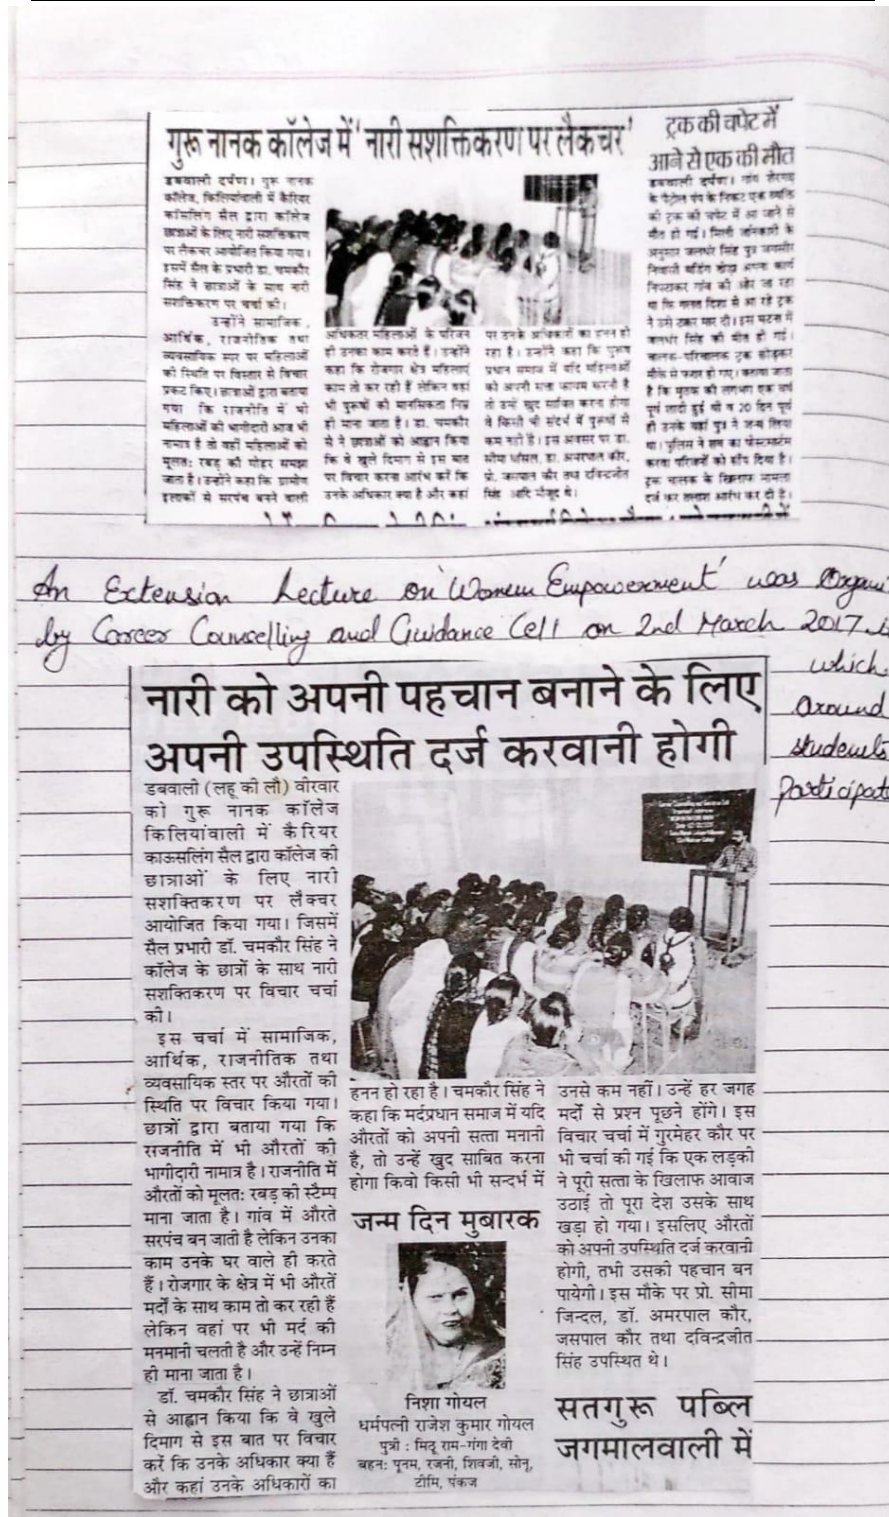 गुरू नानक कॉलेज में 'नारी सशक्तिकरण पर लैक्चर'
डबवाली दर्पण। गुरू नानक
कॉलेज, किलियांवाली में कैरियर
काँसलिंग सैल द्वारा कॉलेज
छात्राओं के लिए नारी सशक्तिकरण
पर लैक्चर आयोजित किया गया।
इसमें सैल के प्रभारी डा. चमकौर
सिंह ने छात्राओं के साथ नारी
सशक्तिकरण पर चर्चा की।
उन्होंने सामाजिक,
आर्थिक, राजनीतिक तथा
व्यवसायिक स्तर पर महिलाओं
की स्थिति पर विस्तार से विचार
प्रकट किए। छात्राओं द्वारा बताया
गया कि राजनीति में भी
महिलाओं की भागीदारी आज भी
नामात्र है तो वहीं महिलाओं को
मूलत: रबड़ की मोहर समझा
जाता है। उन्होंने कहा कि ग्रामीण
इलाकों से सरपंच बनने वाली
अधिकतर महिलाओं के परिजन
ही उनका काम करते हैं। उन्होंने
कहा कि रोजगार क्षेत्र महिलाएं
काम तो कर रही हैं लेकिन वहां
भी पुरूषों की मानसिकता निम्न
ही माना जाता है। डा. चमकौर
से ने छात्राओं को आह्वान किया
कि वे खुले दिमाग से इस बात
पर विचार करना आरंभ करें कि
उनके अधिकार क्या है और कहां
पर उनके अधिकारों का हनन हो
रहा है। उन्होंने कहा कि पुरूष
प्रधान समाज में यदि महिलाओं
को अपनी सत्ता कायम करनी है
तो उन्हें खुद साबित करना होगा
वे किसी भी संदर्भ में पुरूषों से
कम नहीं है। इस अवसर पर डा.
सीमा जिंदल, डा. अमरपाल कौर,
प्रो. जसपाल कौर तथा दविन्द्रजीत
सिंह आदि मौजूद थे।
ट्रक की चपेट में
आने से एक की मौत
डबवाली दर्पण। गांव शेरगढ़
के पैट्रोल पंप के निकट एक व्यक्ति
की ट्रक की चपेट में आ जाने से
मौत हो गई। मिली जानकारी के
अनुसार जलधीर सिंह पुत्र जगसीर
निवासी अपना कार्य
निपटाकर गांव की ओर जा रहा
था कि गलत दिशा से आ रहे ट्रक
ने उसे टक्कर मार दी। इस घटना में
जलधीर सिंह की मौत हो गई।
चालक-परिचालक ट्रक छोड़कर
मौके से फरार हो गए। बताया जाता
है कि मृतक की लगभग एक वर्ष
पूर्व शादी हुई थी व 20 दिन पूर्व
ही उनके यहां पुत्र ने जन्म लिया
था। पुलिस ने शव का पोस्टमार्टम
करवा परिजनों को सौंप दिया है।
ट्रक चालक के खिलाफ मामला
दर्ज कर तलाश आरंभ कर दी है।
An Extension Lecture on 'Women Empowerment' was Organi
by Career Counselling and Guidance Cell on 2nd March 2017
which
around
students
participat
नारी को अपनी पहचान बनाने के लिए
अपनी उपस्थिति दर्ज करवानी होगी
डबवाली (लहू की लौ) वीरवार
को गुरू नानक कॉलेज
किलियांवाली में कैरियर
काऊसलिंग सैल द्वारा कॉलेज की
छात्राओं के लिए नारी
सशक्तिकरण पर लैक्चर
आयोजित किया गया। जिसमें
सैल प्रभारी डॉ. चमकौर सिंह ने
कॉलेज के छात्रों के साथ नारी
सशक्तिकरण पर विचार चर्चा
की।
इस चर्चा में सामाजिक,
आर्थिक, राजनीतिक तथा
व्यवसायिक स्तर पर औरतों की
स्थिति पर विचार किया गया।
छात्रों द्वारा बताया गया कि
राजनीति में भी औरतों की
भागीदारी नामात्र है। राजनीति में
औरतों को मूलत: रबड़ की स्टैम्प
माना जाता है। गांव में औरते
सरपंच बन जाती है लेकिन उनका
काम उनके घर वाले ही करते
हैं। रोजगार के क्षेत्र में भी औरतें
मर्दों के साथ काम तो कर रही हैं
लेकिन वहां पर भी मर्द की
मनमानी चलती है और उन्हें निम्न
ही माना जाता है।
डॉ. चमकौर सिंह ने छात्राओं
से आह्वान किया कि वे खुले
दिमाग से इस बात पर विचार
करें कि उनके अधिकार क्या हैं
और कहां उनके अधिकारों का
हनन हो रहा है। चमकौर सिंह ने
कहा कि मर्दप्रधान समाज में यदि
औरतों को अपनी सत्ता मनानी
है, तो उन्हें खुद साबित करना
होगा किवो किसी भी सन्दर्भ में
उनसे कम नहीं। उन्हें हर जगह
मर्दों से प्रश्न पूछने होंगे। इस
विचार चर्चा में गुरमेहर कौर पर
भी चर्चा की गई कि एक लड़की
ने पूरी सत्ता के खिलाफ आवाज
उठाई तो पूरा देश उसके साथ
खड़ा हो गया। इसलिए औरतों
को अपनी उपस्थिति दर्ज करवानी
होगी, तभी उसकी पहचान बन
पायेगी। इस मौके पर प्रो. सीमा
जिन्दल, डॉ. अमरपाल कौर,
जसपाल कौर तथा दविन्द्रजीत
सिंह उपस्थित थे।
जन्म दिन मुबारक
निशा गोयल
धर्मपत्नी राजेश कुमार गोयल
पुत्री : मिठू राम-गंगा देवी
बहन: पूनम, रजनी, शिवजी, सोनू,
टोमि, पंकज
सतगुरू पब्लि
जगमालवाली में